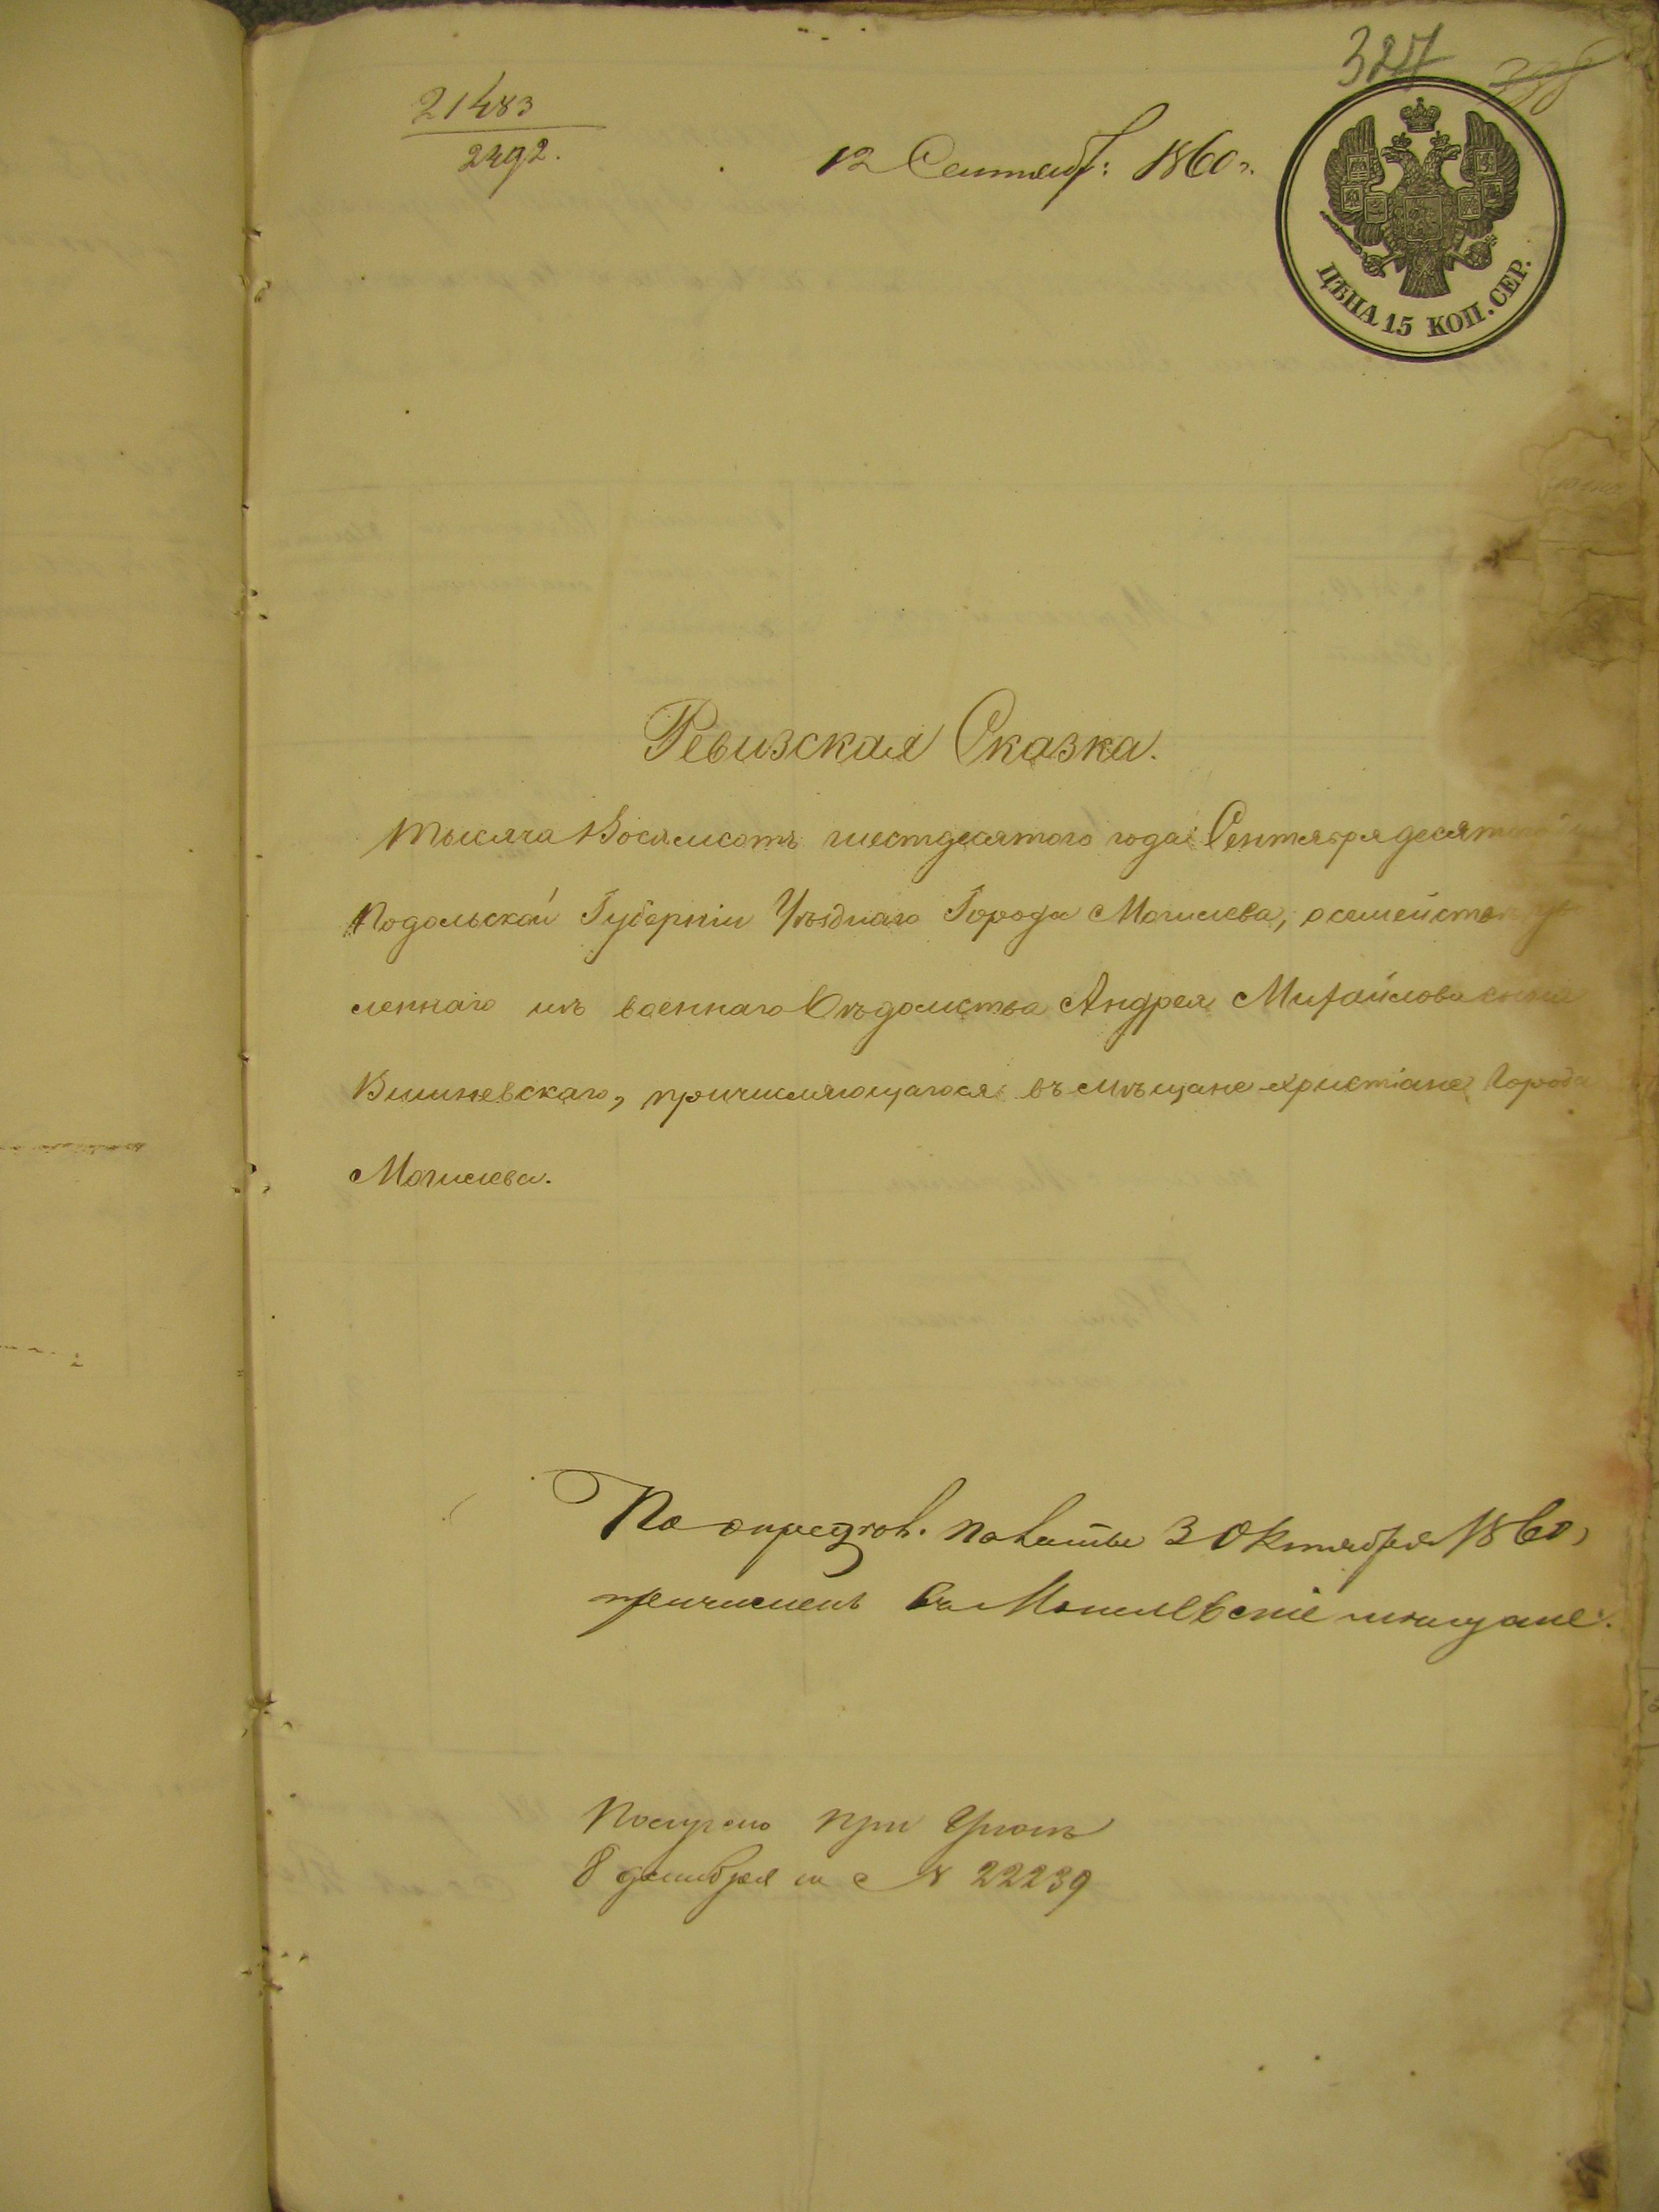 327
338
21483
2492.
12 Сентяб: 1860 г.
ЦѢНА 15 КОП. СЕР.
Ревизская Сказка.
Тысяча Восемсотъ шестдесятого года Сентября десятого
Подольской Губерніи Уѣзднаго Города Могилева, о семействѣ
леннаго изъ военнаго Вѣдомства Андрея Михайлова сына
Вишневскаго, причисляющагося въ мѣщане христіане Города
Могилева.
По опредѣл. палаты 3 Октября 1860,
причисленъ въ Могилевскіе мѣщане.
при
8 декабря за № 22239